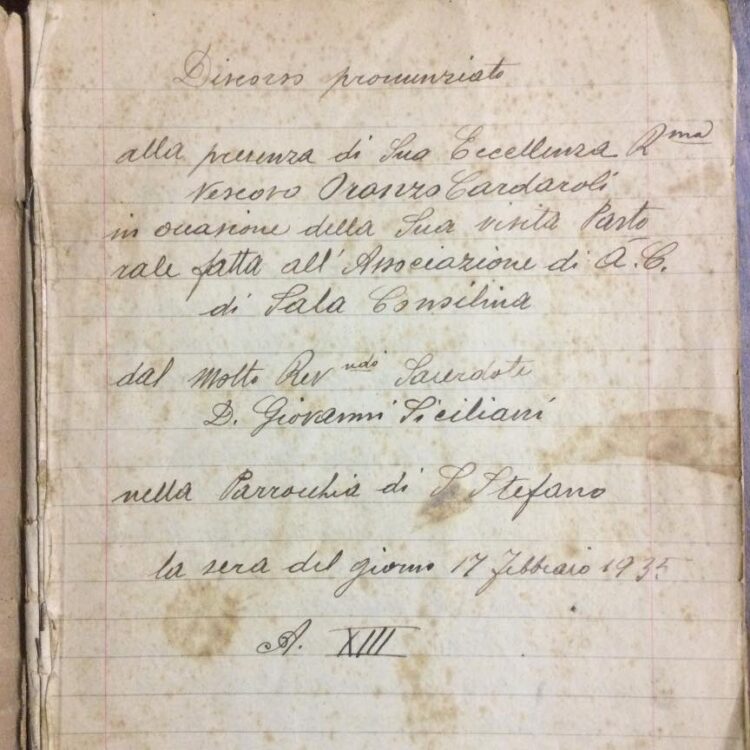 Discorso pronunziato
alla presenza di Sua Eccellenza Rma
Vescovo Oronzo Cardaroli
in occasione della Sua visita Pasto
rale fatta all'Associazione di A. C.
di Sala Consilina
dal Molto Revndo Sacerdote
D. Giovanni Siciliani
nella Parrocchia di S. Stefano
la sera del giorno 17 febbraio 1935
A. XIII